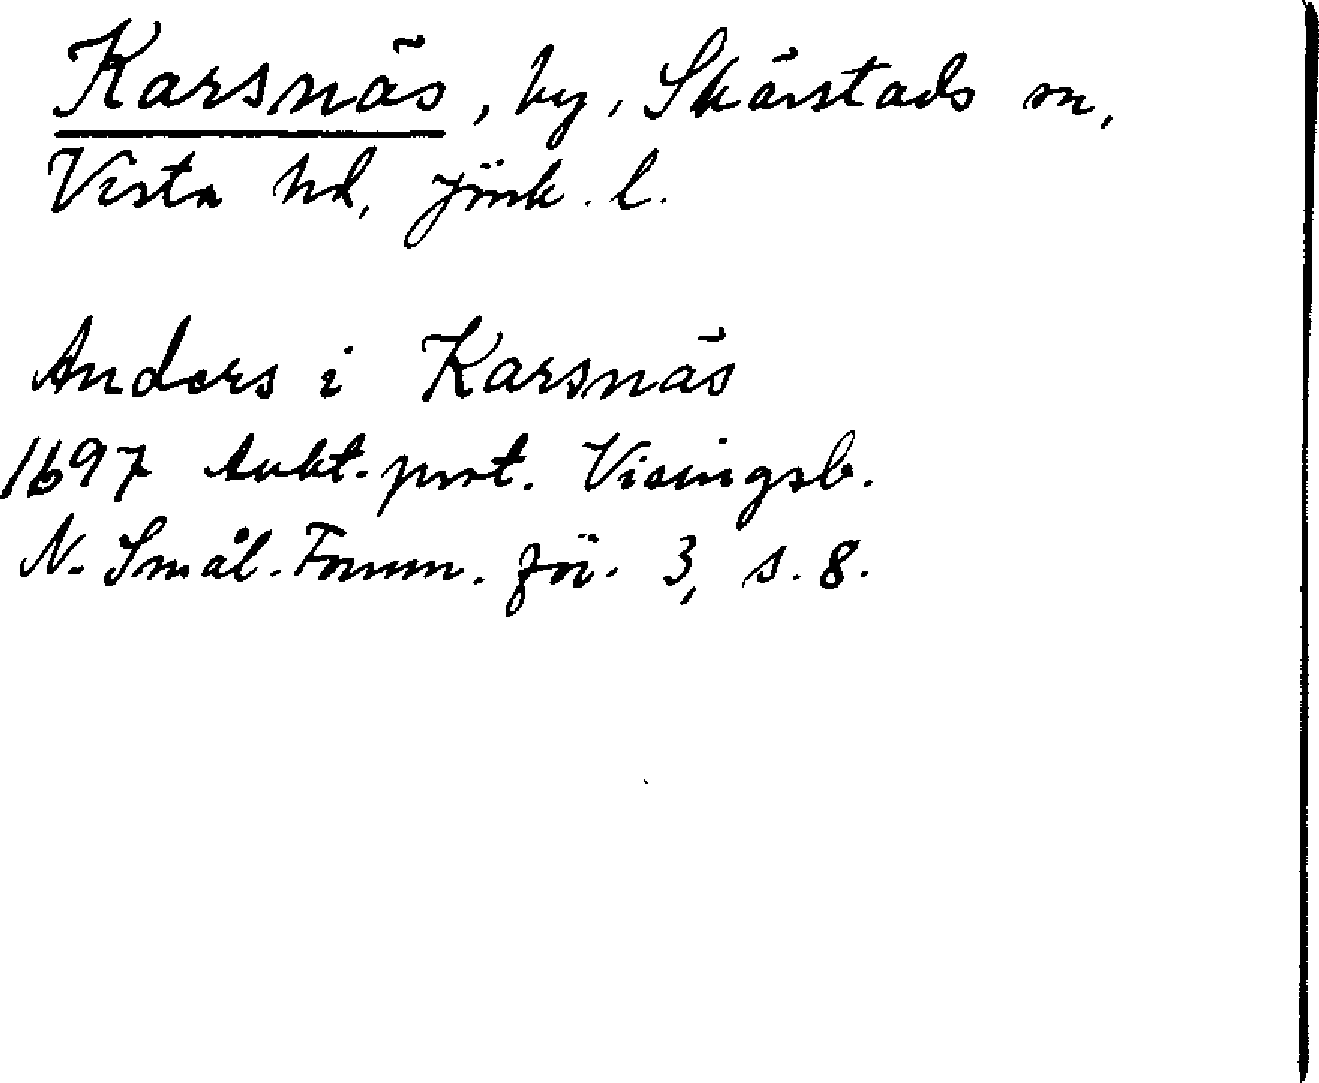 Karsnäs, by, Skärstads sn,
Vista hd, Jönk. l.
Anders i Karsnäs
1697 Aukt.-prot. Visingsb.
N. Smål. Fornm. för. 3, s. 8.